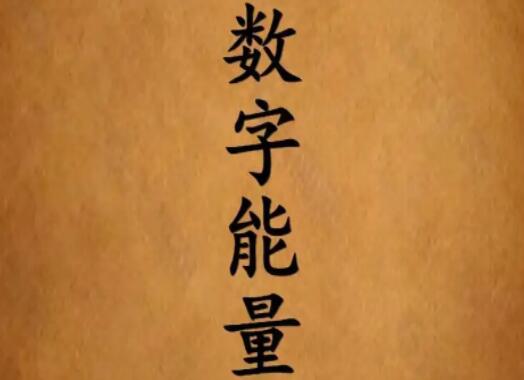 数字能量